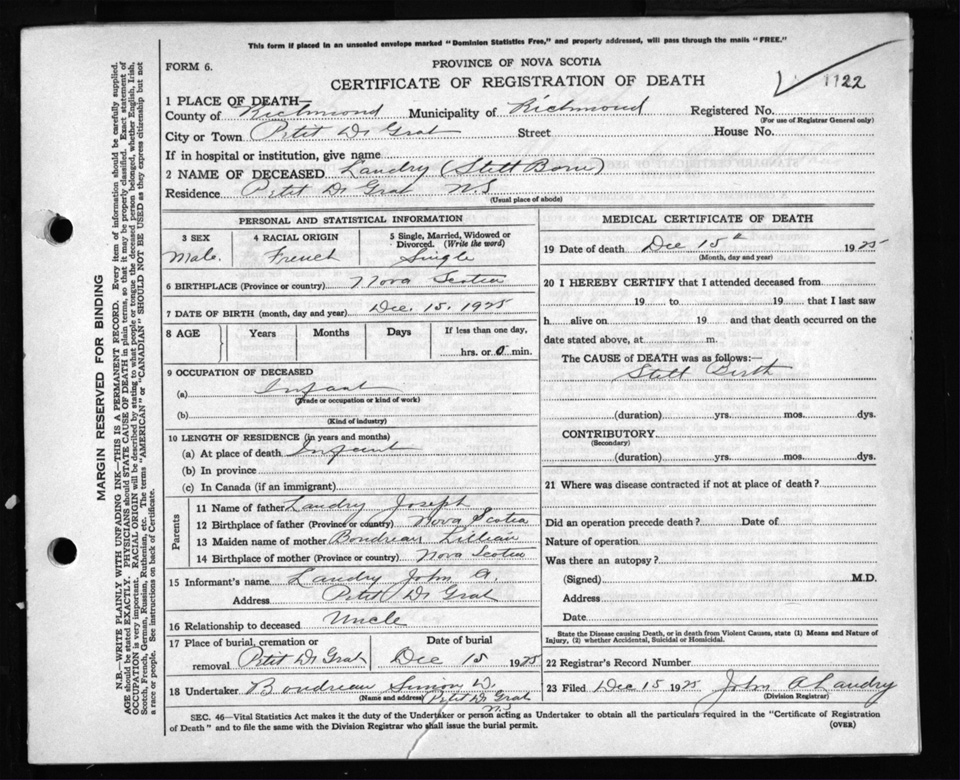 This form if placed in an unsealed envelope marked "Dominion Statistics Free," and properly addressed, will pass through the mails "FREE."
FORM 6.
PROVINCE OF NOVA SCOTIA
CERTIFICATE OF REGISTRATION OF DEATH
1122
1 PLACE OF DEATH—
County of Richmond Municipality of Richmond Registered No.
(For use of Registrar General only)
City or Town Petit De Grat Street House No.
If in hospital or institution, give name
2 NAME OF DECEASED Landry (Still Born)
Residence Petit De Grat N.S
(Usual place of abode)
PERSONAL AND STATISTICAL INFORMATION
3 SEX 4 RACIAL ORIGIN 5 Single, Married, Widowed or Divorced. (Write the word)
Male. French Single
6 BIRTHPLACE (Province or country) Nova Scotia
7 DATE OF BIRTH (month, day and year) Dec. 15. 1925
8 AGE Years Months Days If less than one day,
hrs. or 0 min.
9 OCCUPATION OF DECEASED
(a) Infant
(Trade or occupation or kind of work)
(b)
(Kind of industry)
10 LENGTH OF RESIDENCE (in years and months)
(a) At place of death Infant
(b) In province
(c) In Canada (if an immigrant)
Parents
11 Name of father Landry Joseph
12 Birthplace of father (Province or country) Nova Scotia
13 Maiden name of mother Boudreau Lillian
14 Birthplace of mother (Province or country) Nova Scotia
15 Informant's name Landry John A.
Address Petit De Grat
16 Relationship to deceased Uncle
17 Place of burial, cremation or Date of burial
removal Petit De Grat Dec 15 1925
18 Undertaker Boudreau Simon W.
(Name and address) Petit De Grat
N.S
MEDICAL CERTIFICATE OF DEATH
19 Date of death Dec 15th 1925
(Month, day and year)
20 I HEREBY CERTIFY that I attended deceased from
19 to 19 that I last saw
h alive on 19 and that death occurred on the
date stated above, at m.
The CAUSE of DEATH was as follows:—
Still Birth
(duration) yrs. mos. dys.
CONTRIBUTORY
(Secondary)
(duration) yrs. mos. dys.
21 Where was disease contracted if not at place of death?
Did an operation precede death? Date of
Nature of operation
Was there an autopsy?
(Signed) M.D.
Address
Date
State the Disease causing Death, or in death from Violent Causes, state (1) Means and Nature of
Injury, (2) whether Accidental, Suicidal or Homicidal.
22 Registrar's Record Number
23 Filed Dec 15 1925 John A Landry
(Division Registrar)
SEC. 46—Vital Statistics Act makes it the duty of the Undertaker or person acting as Undertaker to obtain all the particulars required in the "Certificate of Registration
of Death" and to file the same with the Division Registrar who shall issue the burial permit. (OVER)
MARGIN RESERVED FOR BINDING
N.B.—WRITE PLAINLY WITH UNFADING INK—THIS IS A PERMANENT RECORD. Every item of information should be carefully supplied.
AGE should be stated EXACTLY. PHYSICIANS should STATE CAUSE OF DEATH in plain terms, so that it may be properly classified. Exact statement of
OCCUPATION is very important. RACIAL ORIGIN will be described by stating to what people or tongue the deceased person belonged, whether English, Irish,
Scotch, French, German, Russian, Ruthenian, etc. The terms "AMERICAN" or "CANADIAN" SHOULD NOT BE USED as they express citizenship but not
a race or people. See instructions on back of Certificate.